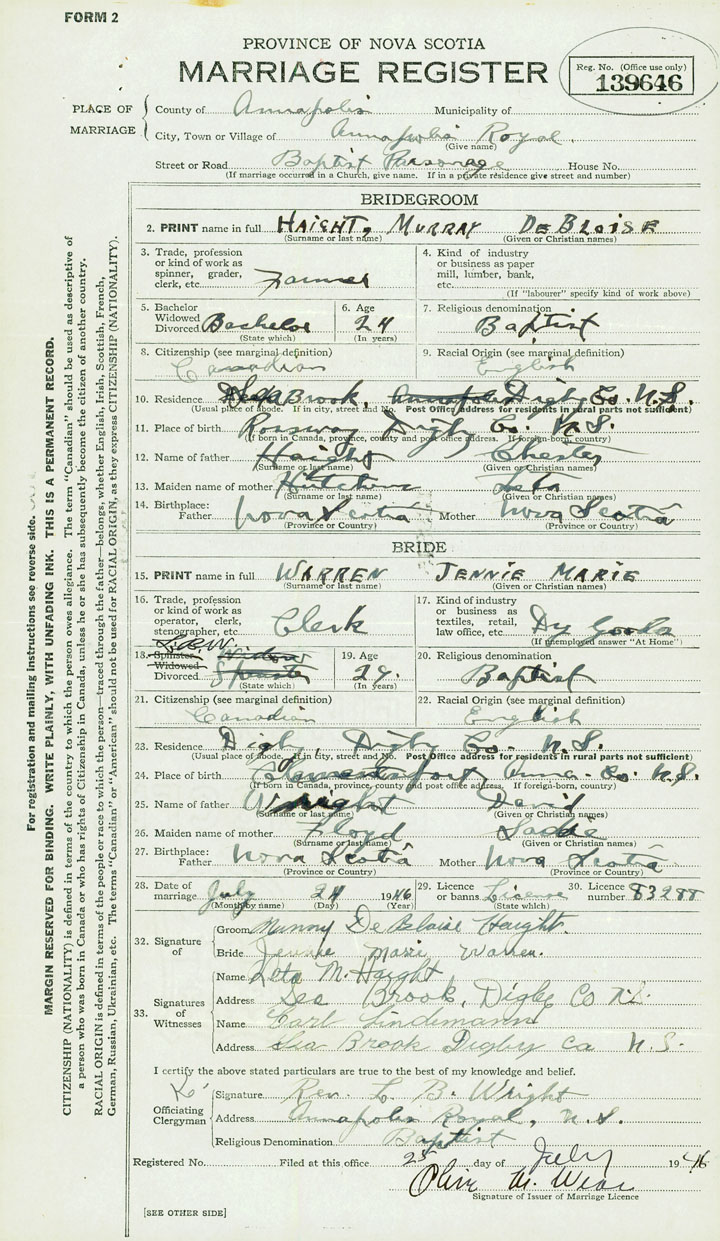 FORM 2
PROVINCE OF NOVA SCOTIA
MARRIAGE REGISTER
Reg. No. (Office use only)
139646
PLACE OF MARRIAGE
County of Annapolis Municipality of
City, Town or Village of Annapolis Royal
(Give name)
Street or Road Baptist Parsonage House No.
(If marriage occurred in a Church, give name. If in a private residence give street and number)
BRIDEGROOM
2. PRINT name in full HAIGHT, MURRAY DEBLOISE
(Surname or last name) (Given or Christian names)
3. Trade, profession or kind of work as spinner, grader, clerk, etc. Farmer
4. Kind of industry or business as paper mill, lumber, bank, etc.
(If "labourer" specify kind of work above)
5. Bachelor Widowed Divorced Bachelor
(State which)
6. Age 24
(In years)
7. Religious denomination Baptist
8. Citizenship (see marginal definition) Canadian
9. Racial Origin (see marginal definition) English
10. Residence Brook, Annapolis Digby Co. N.S.
(Usual place of abode. If in city, street and No. Post Office address for residents in rural parts not sufficient)
11. Place of birth Rossway Digby Co. N.S.
(If born in Canada, province, county and post office address. If foreign-born, country)
12. Name of father Haight Chester
(Surname or last name) (Given or Christian names)
13. Maiden name of mother Hutchins Leta
(Surname or last name) (Given or Christian names)
14. Birthplace: Father Nova Scotia Mother Nova Scotia
(Province or Country) (Province or Country)
BRIDE
15. PRINT name in full WARREN JENNIE MARIE
(Surname or last name) (Given or Christian names)
16. Trade, profession or kind of work as operator, clerk, stenographer, etc. Clerk
17. Kind of industry or business as textiles, retail, law office, etc. Dy Goods
(If unemployed answer "At Home")
L.B.W.
18. Spinster Widowed Divorced Widow Spinster
(State which)
19. Age 24.
(In years)
20. Religious denomination Baptist
21. Citizenship (see marginal definition) Canadian
22. Racial Origin (see marginal definition) English
23. Residence Digby, Digby Co. N.S.
(Usual place of abode. If in city, street and No. Post Office address for residents in rural parts not sufficient)
24. Place of birth Clementsport Anna. Co. N.S.
(If born in Canada, province, county and post office address. If foreign-born, country)
25. Name of father Wright David
(Surname or last name) (Given or Christian names)
26. Maiden name of mother Floyd Sadie
(Surname or last name) (Given or Christian names)
27. Birthplace: Father Nova Scotia Mother Nova Scotia
(Province or Country) (Province or Country)
28. Date of marriage July 24 1946
(Month by name) (Day) (Year)
29. Licence or banns License
(State which)
30. Licence number 83288
32. Signature of
Groom Murray DeBloise Haight.
Bride Jennie Marie Warren.
33. Signatures of Witnesses
Name Leta M. Haight
Address Sea Brook, Digby Co N.S.
Name Carl Lindemann
Address Sea Brook Digby Co N.S.
I certify the above stated particulars are true to the best of my knowledge and belief.
Officiating Clergyman
Signature Rev. L. B. Wright
Address Annapolis Royal, N.S.
Religious Denomination Baptist
Registered No. Filed at this office 25 day of July 1946
Signature of Issuer of Marriage Licence
[SEE OTHER SIDE]
For registration and mailing instructions see reverse side.
MARGIN RESERVED FOR BINDING. WRITE PLAINLY, WITH UNFADING INK. THIS IS A PERMANENT RECORD.
CITIZENSHIP (NATIONALITY) is defined in terms of the country to which the person owes allegiance. The term "Canadian" should be used as descriptive of
a person who was born in Canada or who has rights of Citizenship in Canada, unless he or she has subsequently become the citizen of another country.
RACIAL ORIGIN is defined in terms of the people or race to which the person—traced through the father—belongs, whether English, Irish, Scottish, French,
German, Russian, Ukrainian, etc. The terms "Canadian" or "American" should not be used for RACIAL ORIGIN, as they express CITIZENSHIP (NATIONALITY).